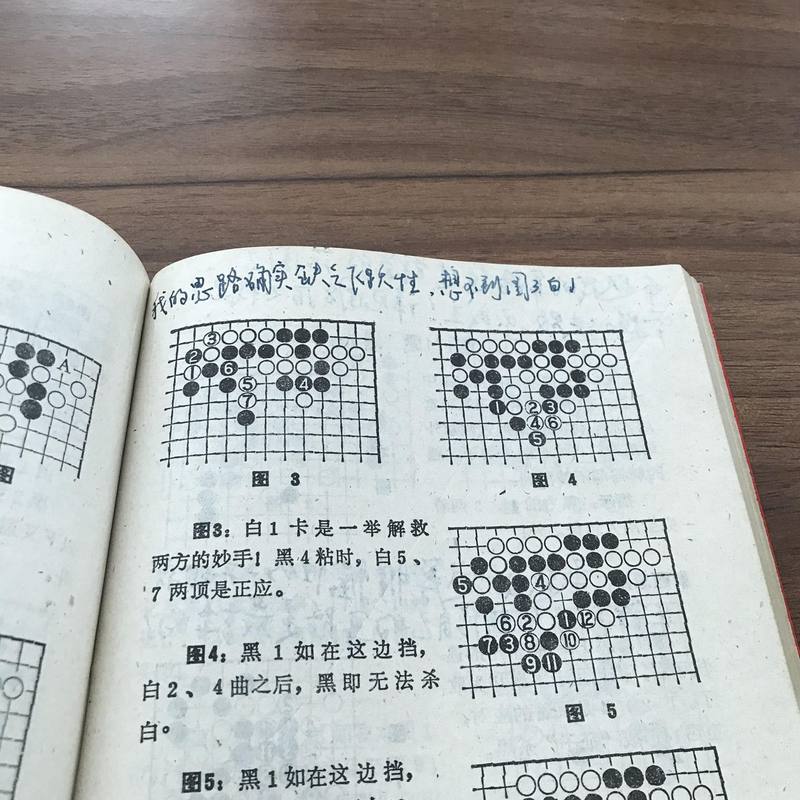 我的思路确实缺乏飞跃性，想不到图3白1
A
图
图 3
图 4
图3：白1卡是一举解救
两方的妙手！黑4粘时，白5、
7两顶是正应。
图4：黑1如在这边挡，
白2、4曲之后，黑即无法杀
白。
图 5
图5：黑1如在这边挡，